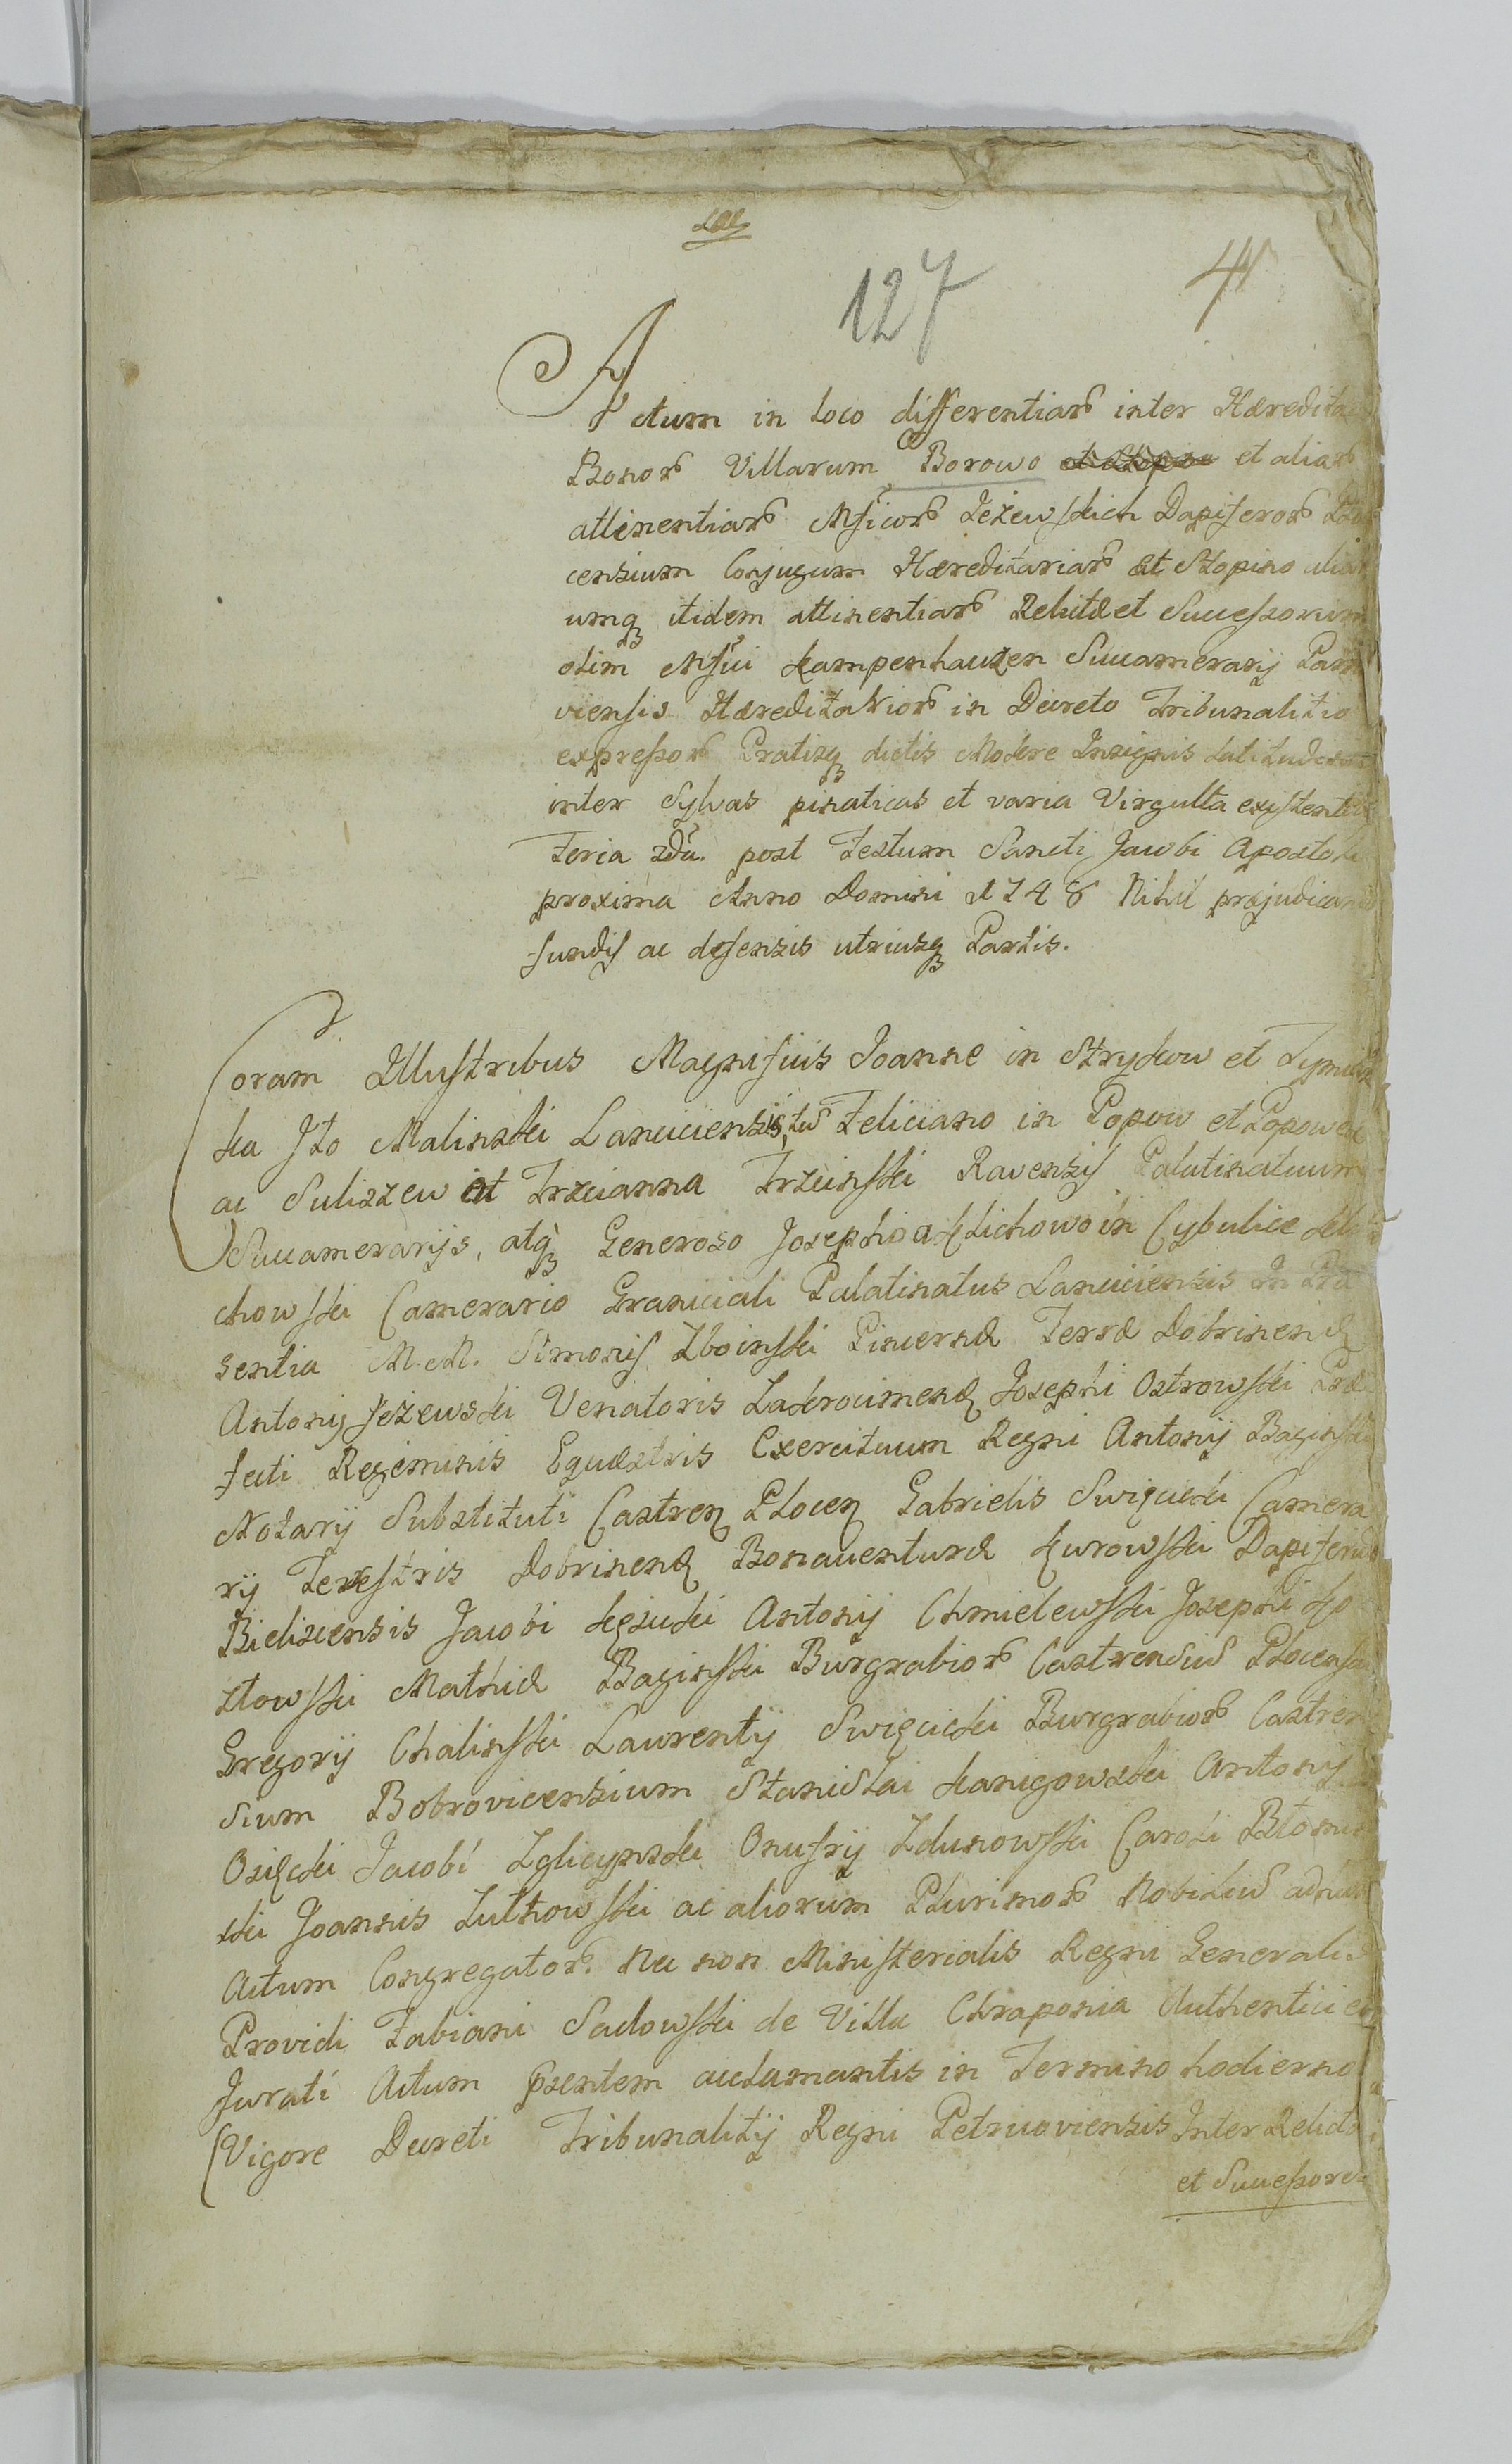 127
4
Actum in Loco differentiarū inter Hæredita
Bonorū Villarum Borowo et aliarū
attinentiarū Mficorū Jeżewskich Dapiferorū Plo
censium Conjugum Hæreditariarū et Słopino aliar
umq itidem attinentiarū Relictæ et Successorum
olim Mfici Kampenhauzen Succamerarij Parn
viensis Hæreditariorū in Decreto Tribunalitio
expressorū Pratisq dictis Mokre Insignis Latitudinis
inter Sylvas pinaticas et varia Virgulta existentibq
Feria 2da. post Festum Sancti Jacobi Apostoli
proxima Anno Domini 1748 Nihil præjudicando
fundis ac defensis utriusq Partis.
Coram Illustribus Magnificis Joanne in Strykow et Tymian
ka Jto Malinski Lanciciensis, tū Feliciano in Popow et Popowek
ac Suliszew et Trzcianna Trzcinski Ravensis Palatinatuum
Succamerarijs, atq Generoso Josepho a Klichowo in Cybulice Kli
chowski Camerario Graniciali Palatinatus Lanciciensis In Præ
sentia M.M. Simonis Zboinski Pincernæ Terræ Dobrinenq
Antonij Jeżewski Venatoris Zakrocimenq Josephi Ostrowski Præ
fecti Regiminis Equestris Exercituum Regni Antonij Baginski
Notarij Substituti Castrenq Plocenq Gabrielis Swięcicki Camera
rij Terrestris Dobrinenq Bonaventuræ Kurowski Dapiferid
Bielscensis Jacobi Kęsicki Antonij Chmielewski Josephi Ko
złowski Mathiæ Baginski Burgrabiorū Castrensiū Plocensiū
Gregorij Chalinski Laurentij Swięcicki Burgrabiorū Castren
sium Bobrovicensium Stanislai Kanigowski Antonij
Osięcki Jacobi Zglicynski Onufrij Zdunowski Caroli Błomic
ski Joannis Lutkowski ac aliorum Plurimorū Nobiliū ad hunc
Actum Congregatorū. Nec non Ministerialis Regni Generalis
Providi Fabiani Sadowski de Villa Chraponia Authentici et
Jurati Actum psentem acclamantis in Termino hodierno
Vigore Decreti Tribunalitij Regni Petricoviensis Inter Relictā
et Successores